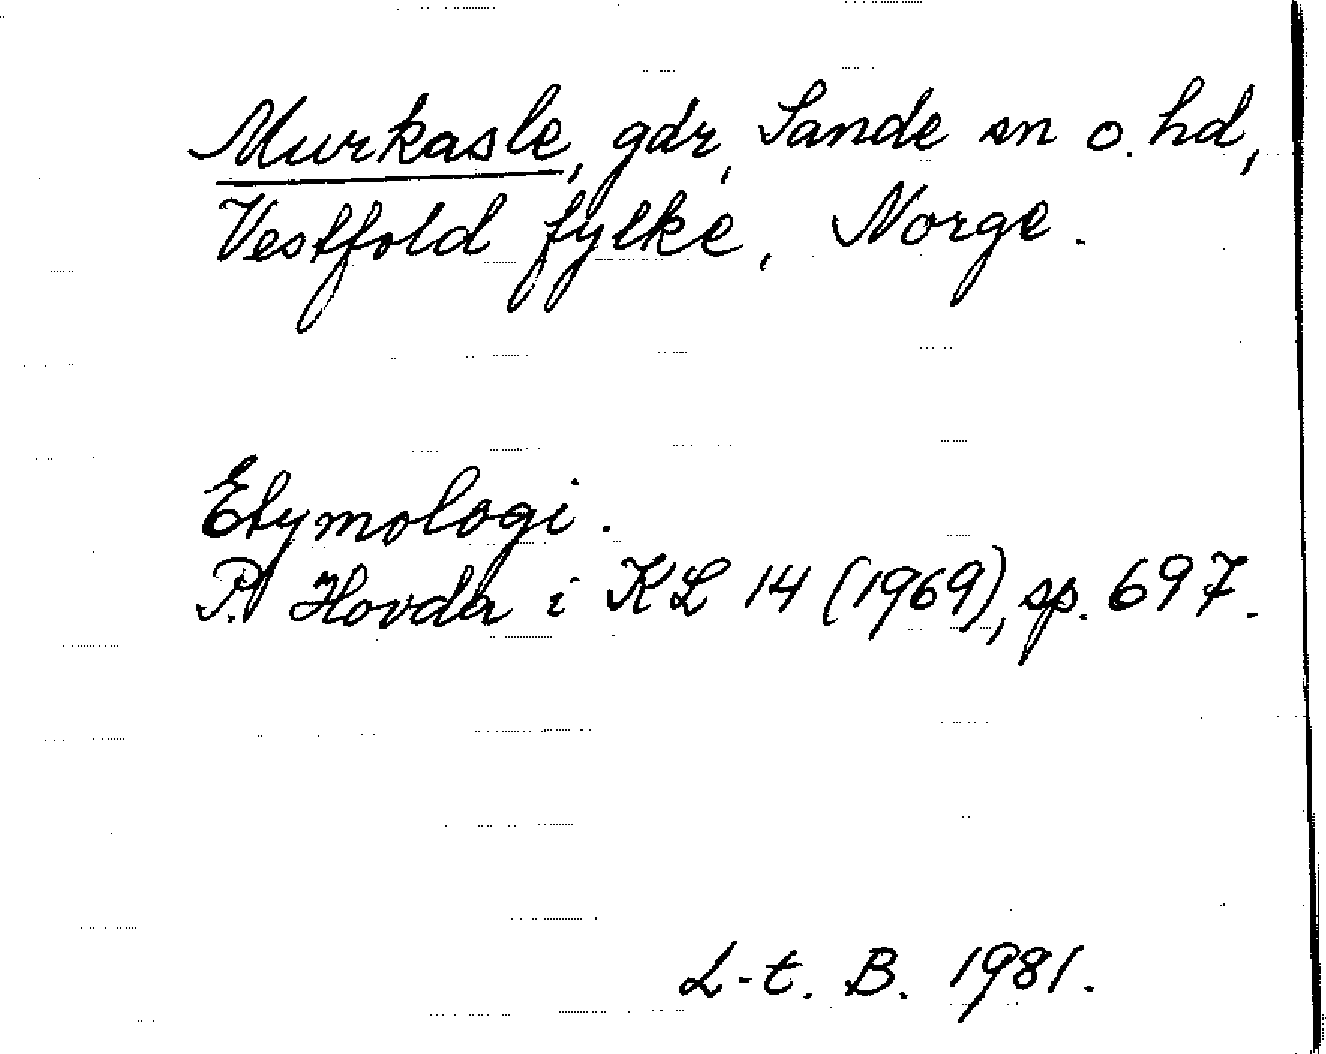 Murkasle, gdr, Sande sn o. hd,
Vestfold fylke, Norge.
Etymologi.
P. Hovda i KL 14 (1969), sp. 697.
L-t. B. 1981.